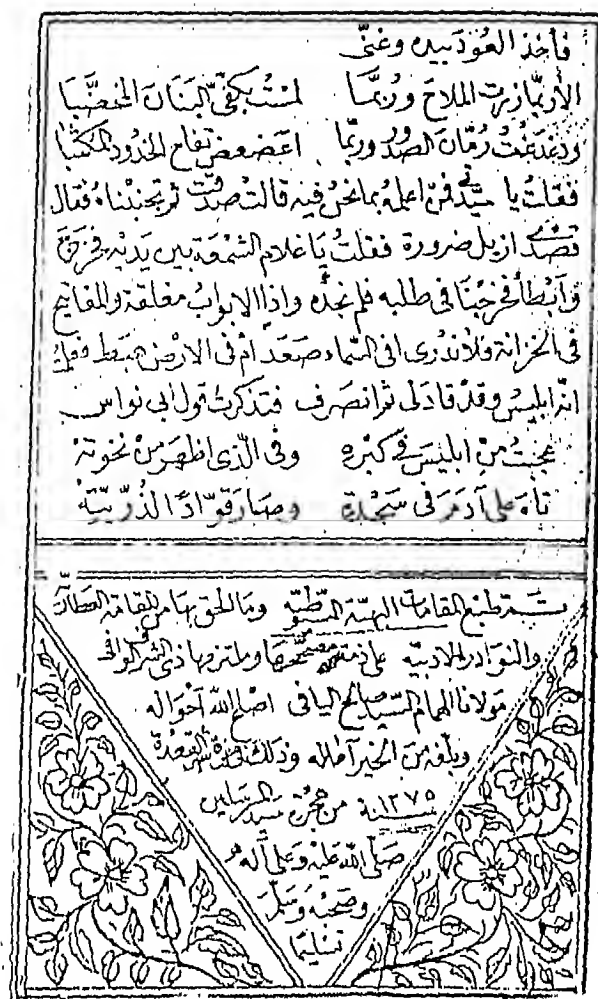 فأخذ العود بيده وغنى
ألا ربما زرت الملاح وربما لمست بكفي البنان المخضبا
ودغدغت رمان الصدور وربما اعضعض تفاح الخدود المكتبا
فقلت يا سيدتي فمن اعلمه بما نحن فيه قالت صدقت ثم تجنبناه فقال
قصدي ازيل ضرورة فقلت يا غلام الشمعة بين يديه فخرج
وابطأ فخرجنا في طلبه فلم نجده واذا الابواب مغلقة والمفاتيح
في الخزانة ولا ندري افي السماء صعد أم في الارض هبط فعلمت
انه ابليس وقد قاد لى ثم انصرف فتذكرت قول ابى نواس
عجبت من ابليس في كبره وفي الذى اظهر من نخوته
تاه على آدم في سجدة وصار قوادا لذريته
تم طبع المقامات البهية السيوطيه وما الحق بها من المقامة
والنوادر الادبيه على ذمة مصححها وملتزمها ذى الشرف الوافى
مولانا الهمام السيد صالح اليافى اصلح الله أحواله
وبلغه من الخير آماله وذلك في غرة شهر القعدة
سنة ١٢٧٥ من هجرة سيد المرسلين
صلى الله عليه وعلى آله
وصحبه وسلم
تسليما